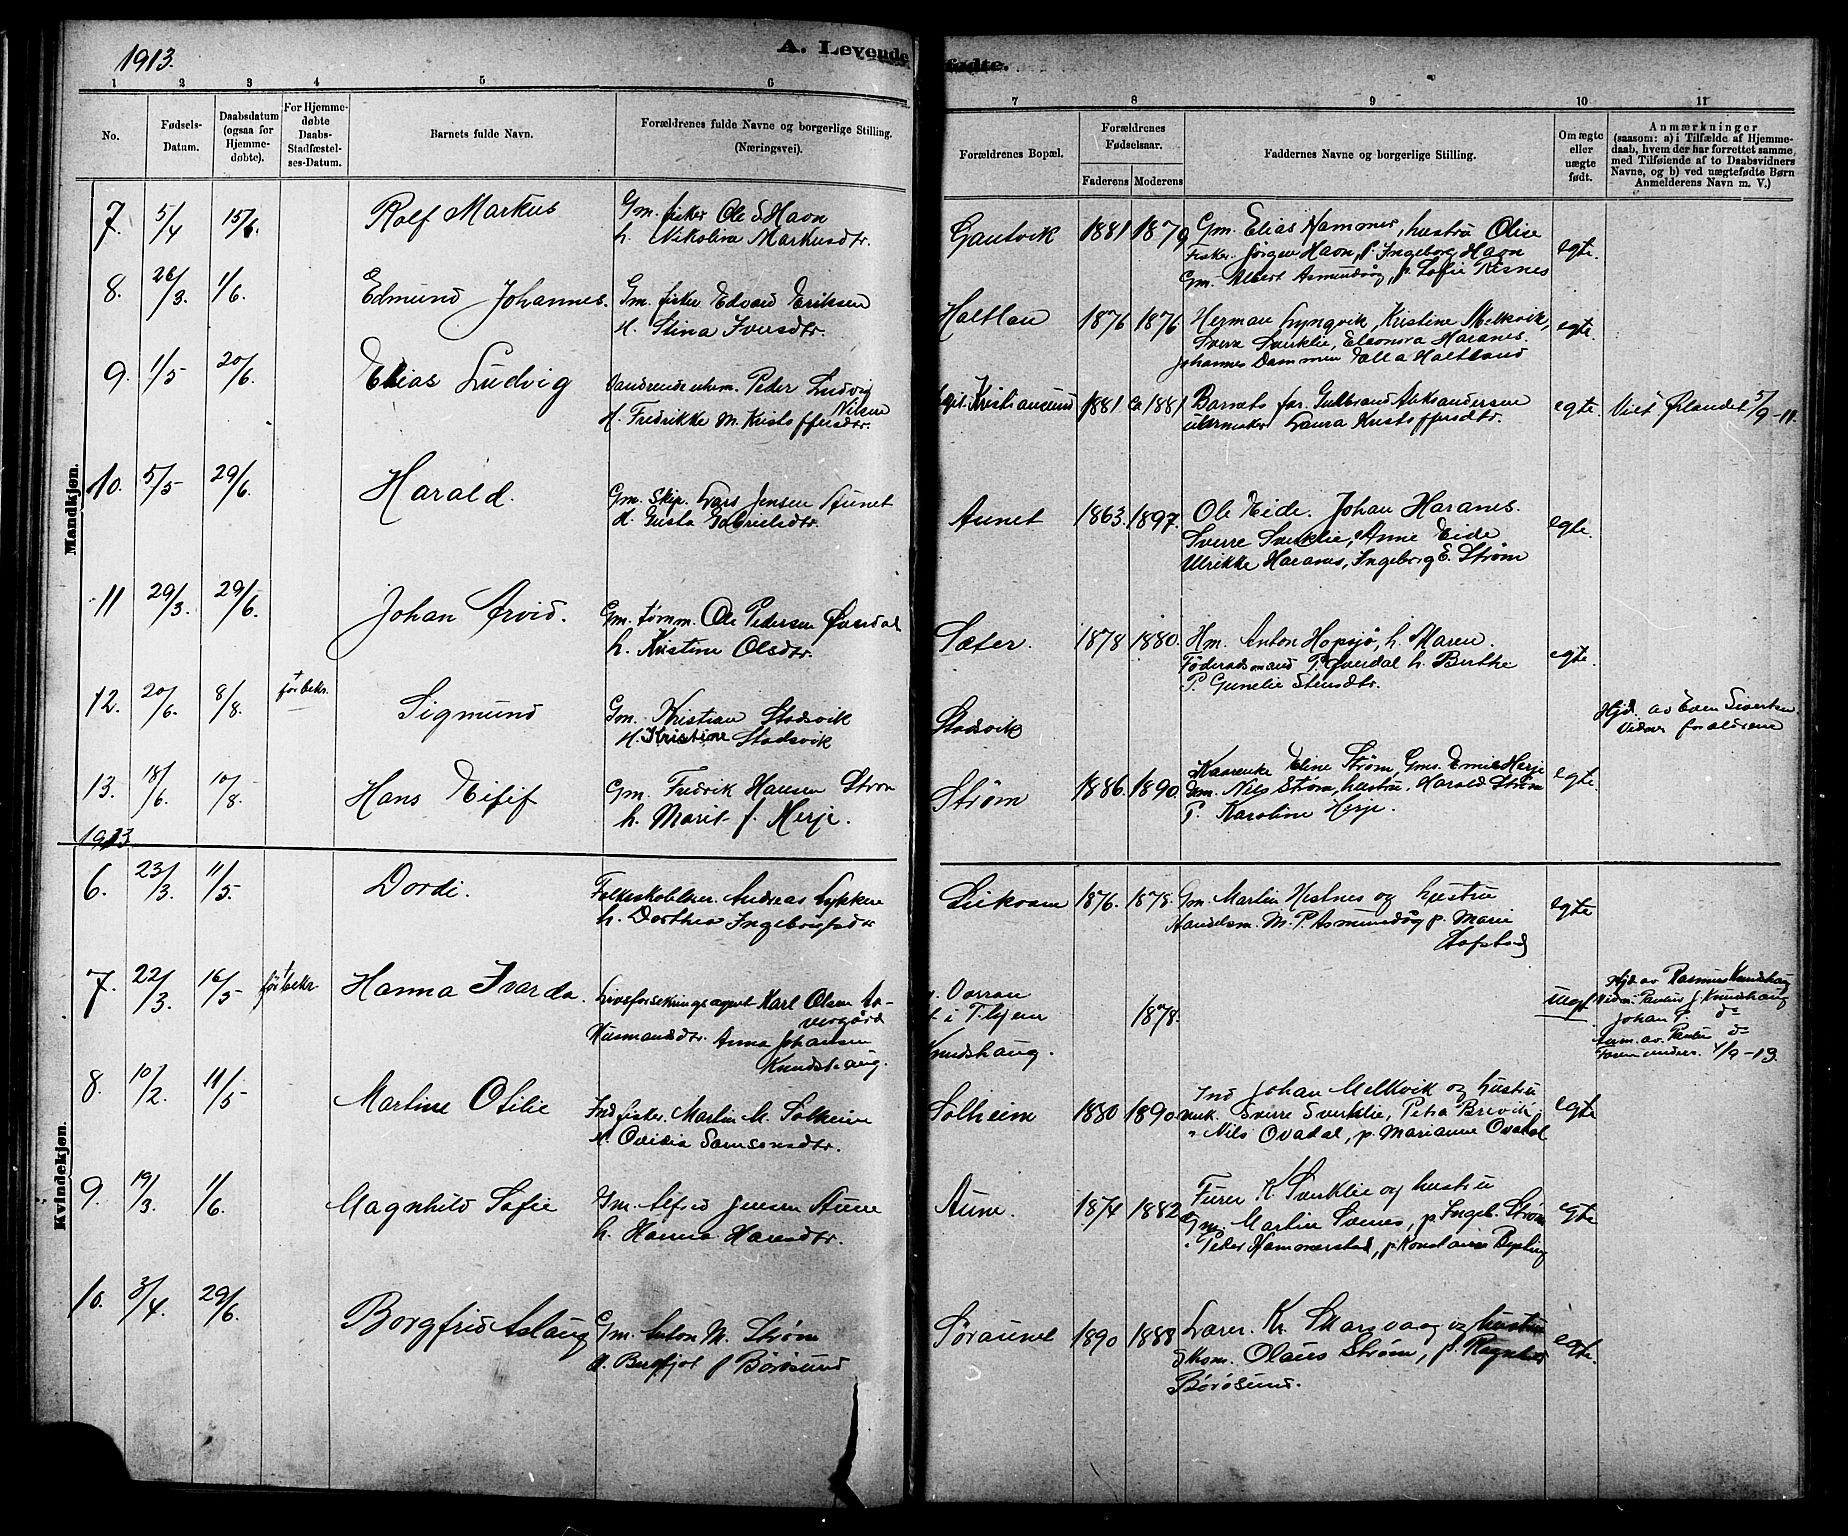 1913.
A. Levende
fødte.
1 2 3 4 5 6 7 8 9 10 11
No.
Fødsels-
Datum.
Daabsdatum
(ogsaa for
Hjemme-
døbte).
For Hjemme-
døbte
Daabs-
Stadfæstel-
ses-Datum.
Barnets fulde Navn.
Forældrenes fulde Navne og borgerlige Stilling.
(Næringsvei).
Forældrenes Bopæl.
Forældrenes
Fødselsaar.
Faderens Moderens
Faddernes Navne og borgerlige Stilling.
Om ægte
eller
uægte
født.
Anmærkninger
(saasom: a) i Tilfælde af Hjemme-
daab, hvem der har forrettet samme,
med Tilføiende af to Daabsvidners
Navne, og b) ved uægtefødte Børn
Anmelderens Navn m. V.)
Mandkjøn.
7. 5/4 15/6. Rolf Markus
Gm. fisker Ole Havn
h. Nikoline Markusdtr.
Gautvik 1881 1879
Gm. Elias Hammer, hustru Olise
Fisker Jørgen Havn, p. Ingeborg Havn
Gm. Albert Asmundvåg, p. Sofie Risnes
egte.
8. 26/3. 1/6. Edmund Johannes.
Gm. fisker Edvard Eriksen
H. Stina Iversdtr.
Haltlan 1876 1876.
Herman Lyngvik, Kristine Melkvik,
Sverre Sverklie, Eleonora Haranes.
Johannes Dammen Ella Haltland
egte.
9. 1/5 20/6. Elias Ludvig
Vandrende urm. Peder Ludvig
Nilsen
H. Fredrikke M. Kristoffersdtr.
Kristiansund 1881 1881
Barnets far. Gulbrand Aleksandersen
urmaker Laura Kristoffersdtr.
egte. Viet Ørlandet 5/9-11.
10. 5/5 29/6. Harald.
Gm. Skip. Lars Jensen Aunet
H. Gusta Gabrielsdtr.
Aunet 1863. 1897.
Ole Eide. Johan Haranes.
Sverre Sverklie, Anne Eide
Ulrikke Haranes, Ingeborg E. Strøm
egte.
11 29/3. 29/6. Johan Arvid.
Gm. tømm. Ole Pedersen
h. Kristine Olsdtr.
Sæter. 1878 1880.
Hm. Anton Hopsjø, h. Maren.
Føderaadsmand P. h. Berthe
P. Gunelie Stensdtr.
egte.
12. 20/6. 8/8. Sigmund
Gm. Kristian Stadsvik
H. Kristine Stadsvik
Stadsvik
Hjd. av Even Sivertsen
Vidner forældrene
13. 18/6. 10/8. Hans
Gm. Fredrik Hansen Strøm
h. Marit f. Herje.
Strøm 1886. 1890.
Eline Strøm, Gms. Emil Herje
Gm. Nils Strøm, hustru. Harald Strøm
P. Karoline Herje.
egte.
1913.
Kvindekjøn.
6. 23/3. 11/5. Dordi.
Folkeskolelærer Andreas Lykken
h. Dorthea Ingebrigtsdtr
1876. 1878.
Gm. Martin Hestnes og hustru
Handelsm. M. P. Asmundvåg p. Marie
Hofstad
egte
7. 22/3. 16/5 Hanna Ivarda.
Livsforsikringsagent Karl Olsen
Husmandsdtr. Anna Johansen
Knudshaug.
i T.hjem
Knudshaug.
1878.
uegt.
Hjd. av Rasmus Knudshaug
Vidn. Paulus J. Knudshaug
Johan P. do
Anm. av. Paulus do
4/9-13.
8. 10/2. 11/5 Martine Otilie
Ind. fisker. Martin M. Solheim
H. Ovidia Samsonsdtr.
Solheim 1880 1890
Ind Johan Melkvik og hustru
Sverre Sverklie, Petra Brevik
" Nils Ovadal, p. Marianne Ovadal
egte
9. 19/3. 1/6. Magnhild Sofie
Gm. Alfred Jensen Aune
h. Hanna Hansdtr.
Aune. 1874 1882
K Sverklie og hustru
Gm. Martin Svenes, p. Ingeb. Strøm
" Peder Hammerstad, p.
egte
10. 3/4. 29/6. Borgfrid Aslaug
Gm. Anton M. Strøm
H. Bergljot f Børøsund
Søraunet 1890 1888
Lærer. K. Skarsvaag og hustru
Olaus Strøm, p. Ragnhild
Børøsund.
egte.